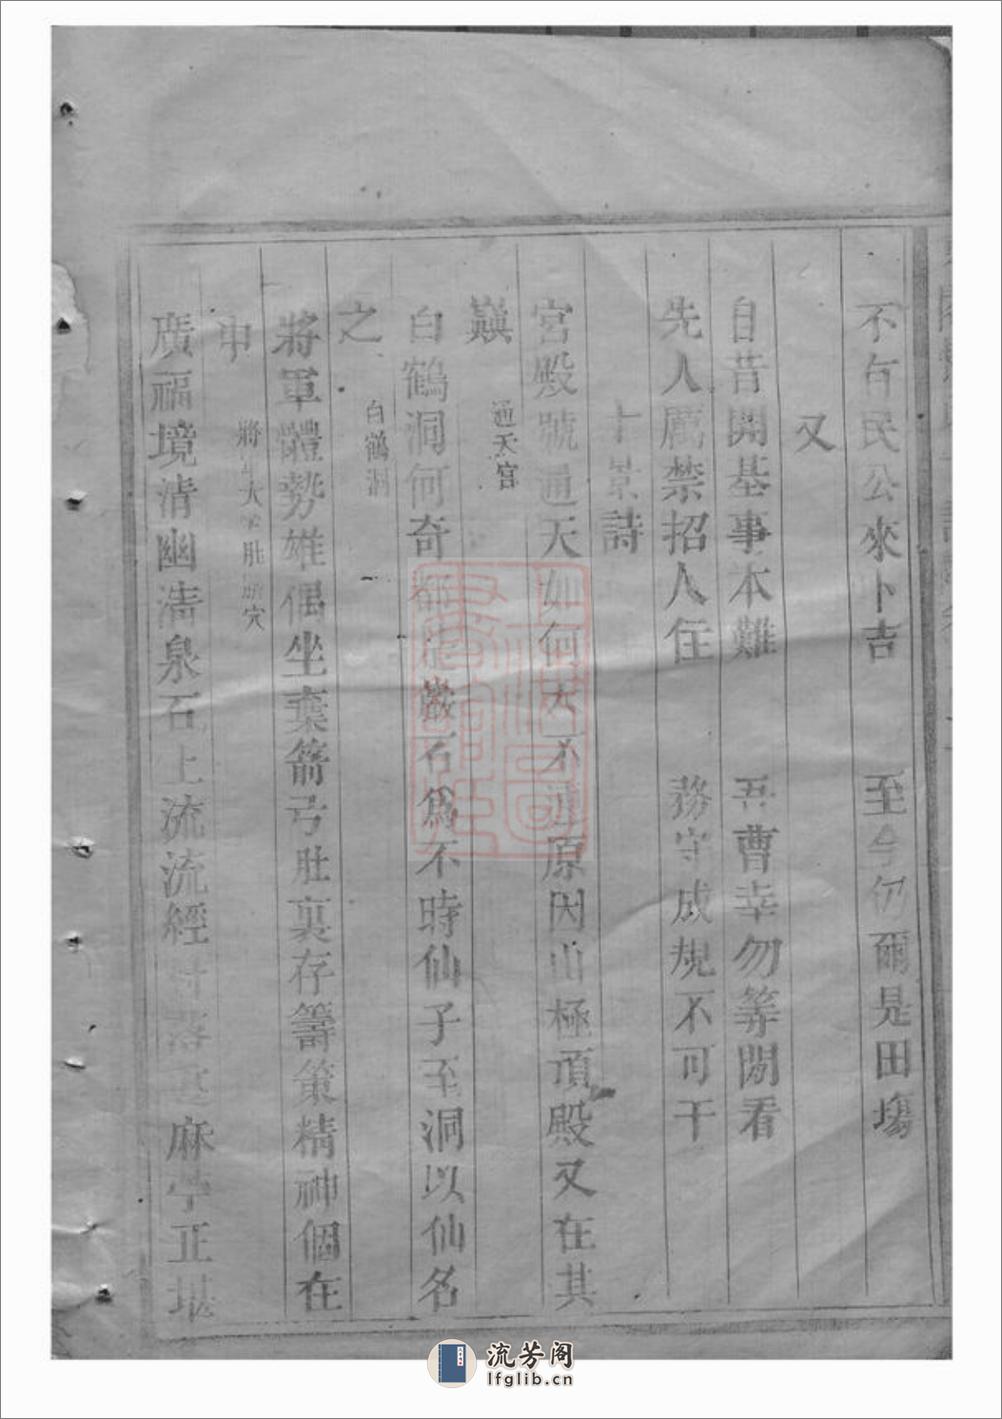 不有民公來卜吉　至今仍爾是田塲
又
自昔開基事本難　吾曹幸勿等閒看
先人厲禁招人住　務守成規不可干
十景詩
宮殿號通天如何天不遠原因山極頂殿又在其
巔　通天宮
白鶴洞何奇都是巖石為不時仙子至洞以仙名
之　白鶴洞
將軍體勢雄偶坐棄箭弓肚裏存籌策精神個在
中　將軍大坐肚臍穴
廣福境清幽清泉石上流流經麻竺正堪
流芳阁
lfglib.cn